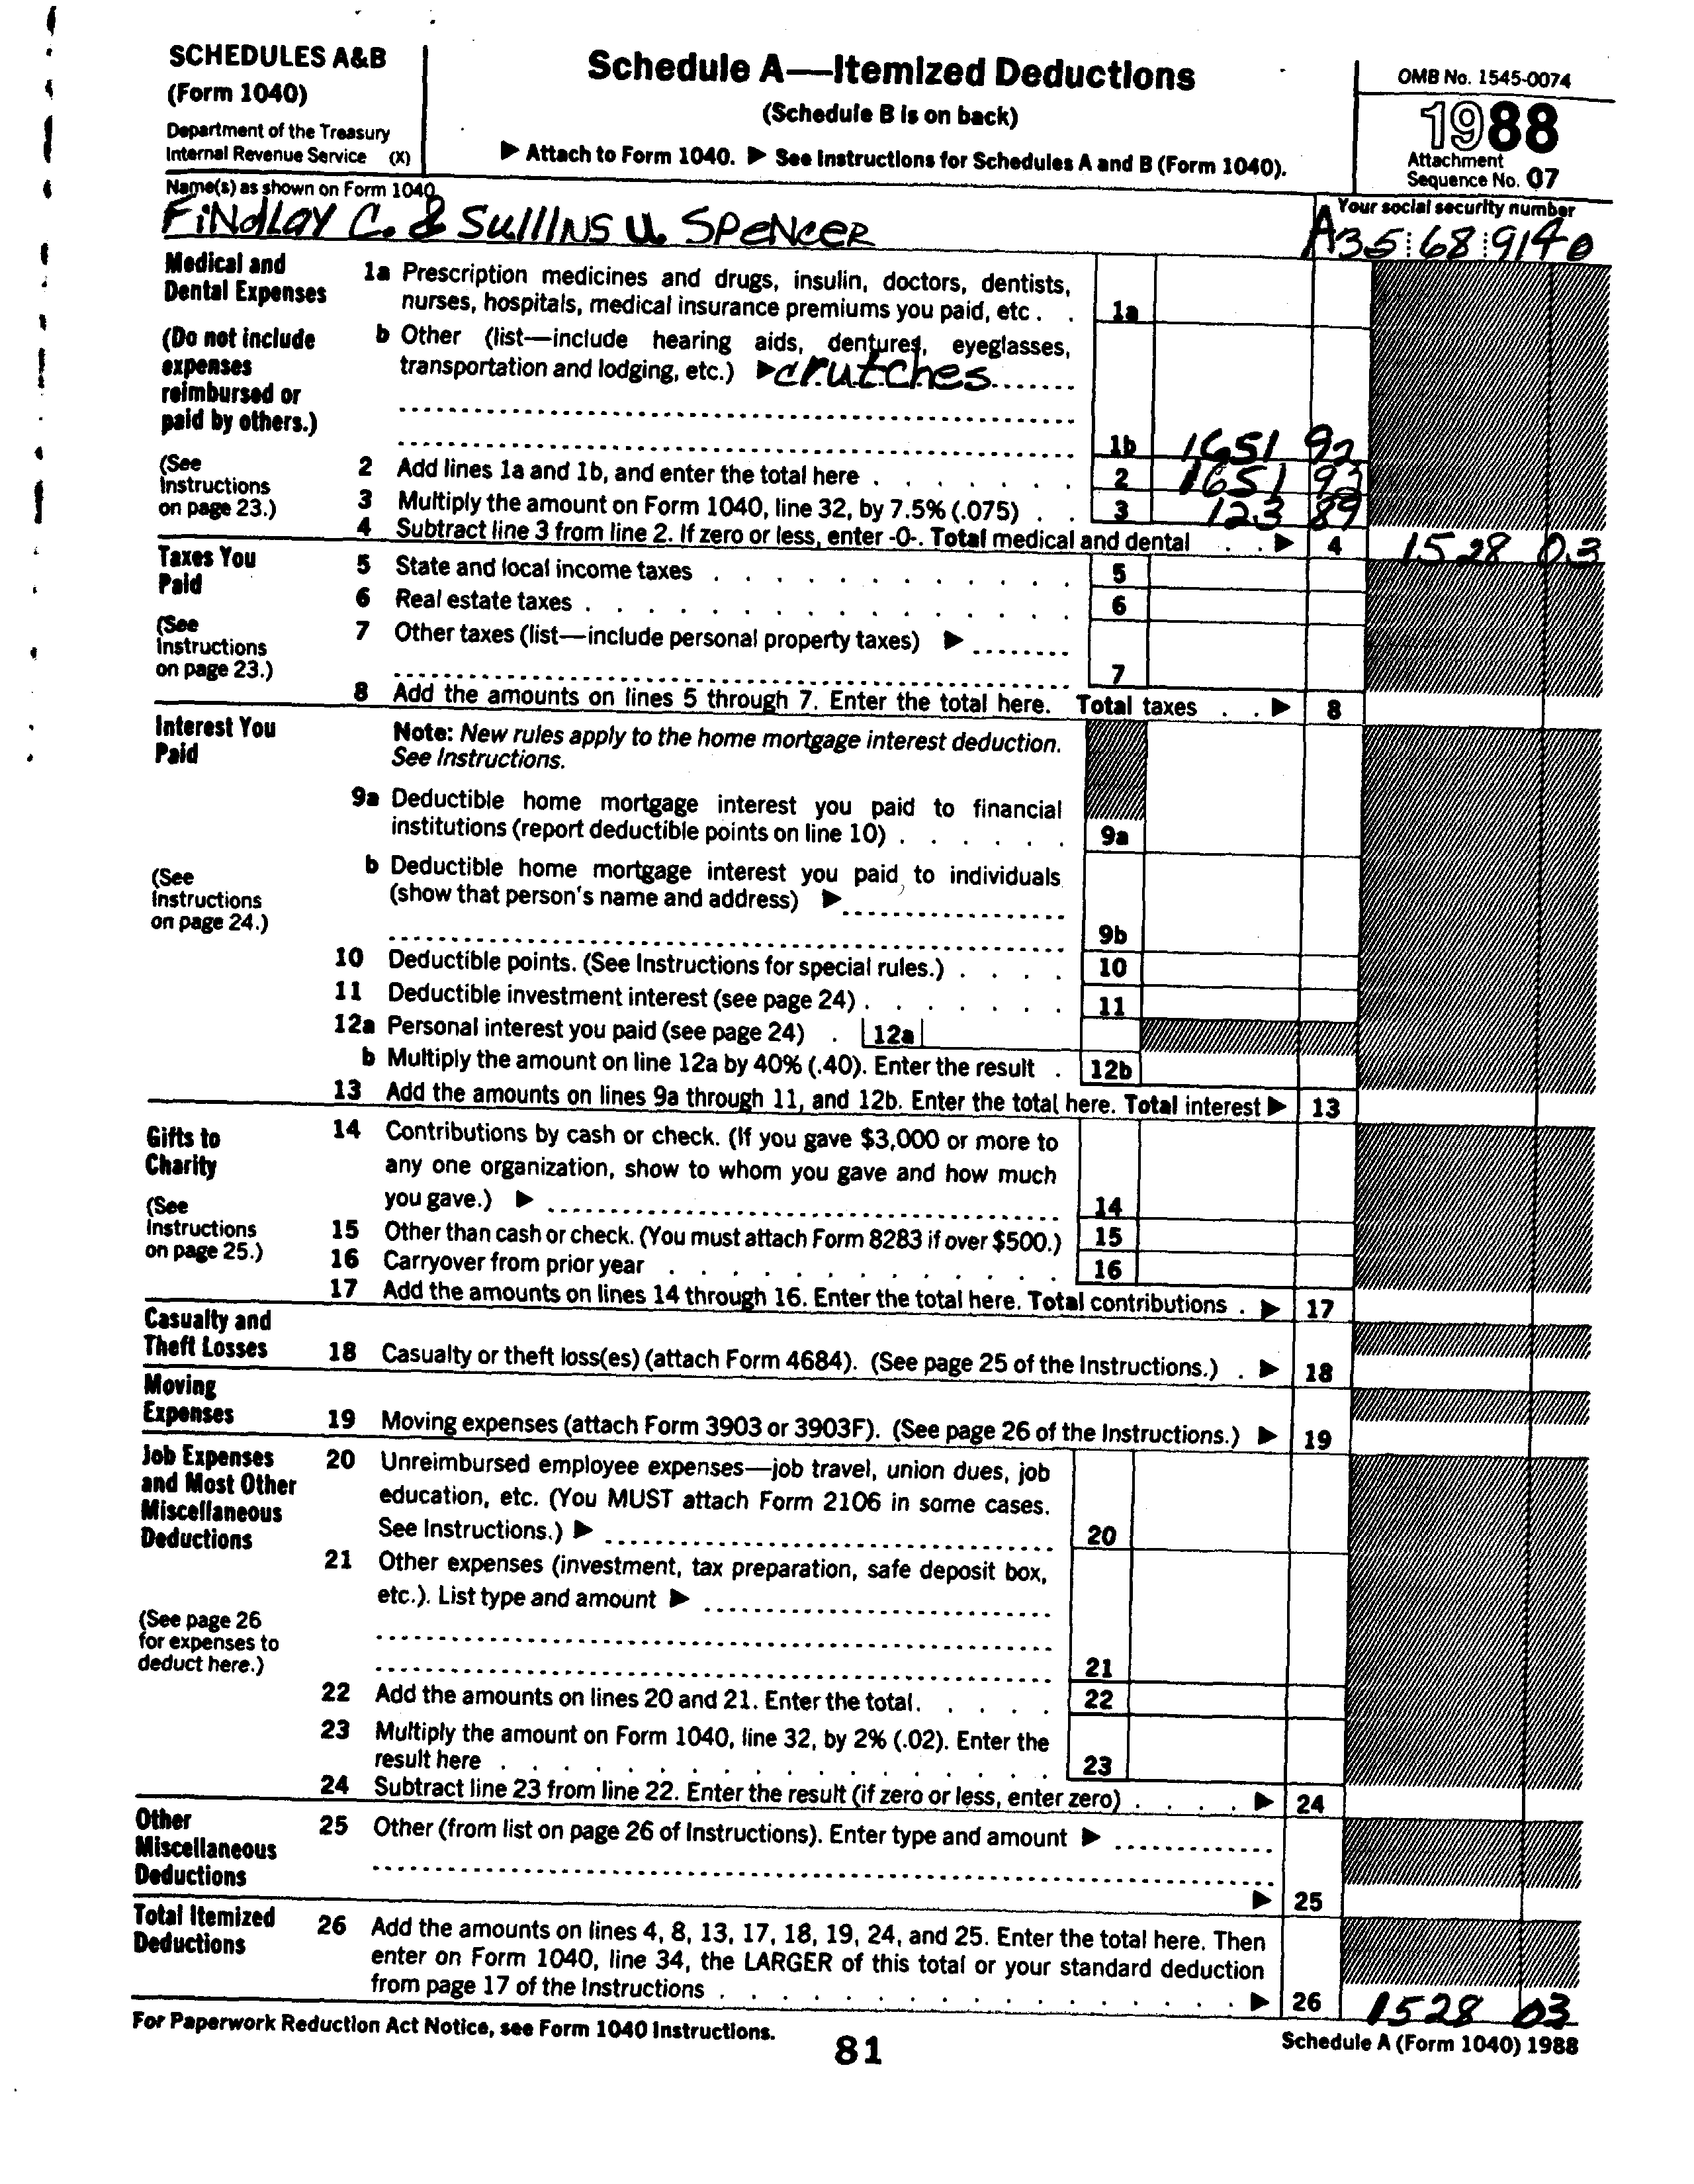 SCHEDULES A&B
(Form 1040)
Department of the Treasury
Internal Revenue Service (X)
Schedule A—Itemized Deductions
(Schedule B is on back)
▶ Attach to Form 1040. ▶ See Instructions for Schedules A and B (Form 1040).
OMB No. 1545-0074
1988
Attachment
Sequence No. 07
Name(s) as shown on Form 1040
FiNdLay C. & SullINS U. SPeNceR
Your social security number
A35 68 9140
Medical and
Dental Expenses
(Do not include
expenses
reimbursed or
paid by others.)
(See
Instructions
on page 23.)
1a Prescription medicines and drugs, insulin, doctors, dentists,
nurses, hospitals, medical insurance premiums you paid, etc . . 1a
b Other (list—include hearing aids, dentures, eyeglasses,
transportation and lodging, etc.) ▶ crutches
1b 1651 92
2 Add lines 1a and 1b, and enter the total here . . . . . . . 2 1651 92
3 Multiply the amount on Form 1040, line 32, by 7.5% (.075) . . 3 123 89
4 Subtract line 3 from line 2. If zero or less, enter -0-. Total medical and dental . . ▶ 4 1528 03
Taxes You
Paid
(See
Instructions
on page 23.)
5 State and local income taxes . . . . . . . . . . . . 5
6 Real estate taxes . . . . . . . . . . . . . . . 6
7 Other taxes (list—include personal property taxes) ▶
7
8 Add the amounts on lines 5 through 7. Enter the total here. Total taxes . . ▶ 8
Interest You
Paid
(See
Instructions
on page 24.)
Note: New rules apply to the home mortgage interest deduction.
See Instructions.
9a Deductible home mortgage interest you paid to financial
institutions (report deductible points on line 10) . . . . . . 9a
b Deductible home mortgage interest you paid to individuals
(show that person's name and address) ▶
9b
10 Deductible points. (See Instructions for special rules.) . . . . 10
11 Deductible investment interest (see page 24) . . . . . . . 11
12a Personal interest you paid (see page 24) . 12a
b Multiply the amount on line 12a by 40% (.40). Enter the result . 12b
13 Add the amounts on lines 9a through 11, and 12b. Enter the total here. Total interest ▶ 13
Gifts to
Charity
(See
Instructions
on page 25.)
14 Contributions by cash or check. (If you gave $3,000 or more to
any one organization, show to whom you gave and how much
you gave.) ▶ 14
15 Other than cash or check. (You must attach Form 8283 if over $500.) 15
16 Carryover from prior year . . . . . . . . . . . . . 16
17 Add the amounts on lines 14 through 16. Enter the total here. Total contributions . ▶ 17
Casualty and
Theft Losses
18 Casualty or theft loss(es) (attach Form 4684). (See page 25 of the Instructions.) . ▶ 18
Moving
Expenses
19 Moving expenses (attach Form 3903 or 3903F). (See page 26 of the Instructions.) ▶ 19
Job Expenses
and Most Other
Miscellaneous
Deductions
(See page 26
for expenses to
deduct here.)
20 Unreimbursed employee expenses—job travel, union dues, job
education, etc. (You MUST attach Form 2106 in some cases.
See Instructions.) ▶ 20
21 Other expenses (investment, tax preparation, safe deposit box,
etc.). List type and amount ▶
21
22 Add the amounts on lines 20 and 21. Enter the total. . . . . 22
23 Multiply the amount on Form 1040, line 32, by 2% (.02). Enter the
result here . . . . . . . . . . . . . . . . . 23
24 Subtract line 23 from line 22. Enter the result (if zero or less, enter zero) . . . . ▶ 24
Other
Miscellaneous
Deductions
25 Other (from list on page 26 of Instructions). Enter type and amount ▶
▶ 25
Total Itemized
Deductions
26 Add the amounts on lines 4, 8, 13, 17, 18, 19, 24, and 25. Enter the total here. Then
enter on Form 1040, line 34, the LARGER of this total or your standard deduction
from page 17 of the Instructions . . . . . . . . . . . . . . . . ▶ 26 1528 03
For Paperwork Reduction Act Notice, see Form 1040 Instructions.
81
Schedule A (Form 1040) 1988